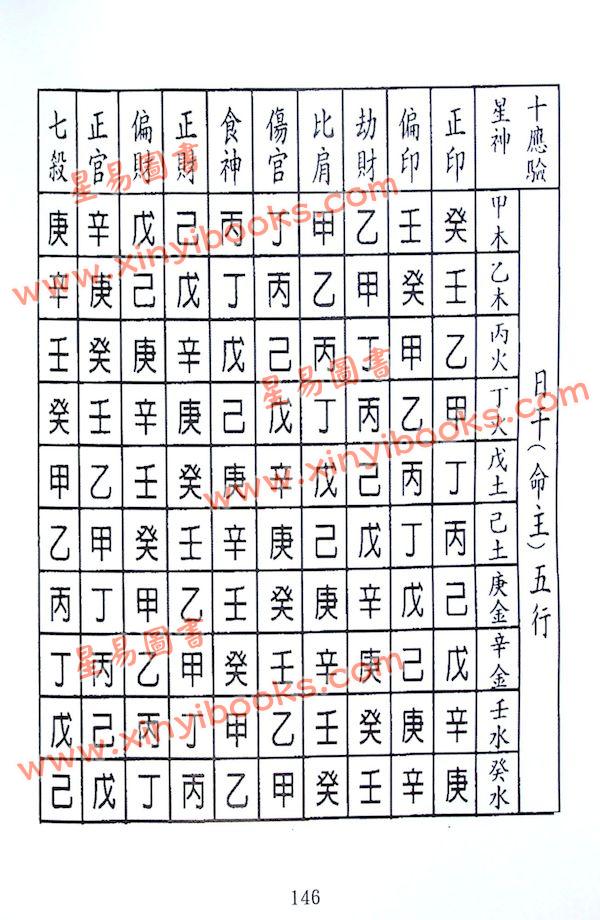 十應驗
日干(命主)五行
星神
甲木 乙木 丙火 丁火 戊土 己土 庚金 辛金 壬水 癸水
正印 癸 壬 乙 甲 丁 丙 己 戊 辛 庚
偏印 壬 癸 甲 乙 丙 丁 戊 己 庚 辛
劫財 乙 甲 丁 丙 己 戊 辛 庚 癸 壬
比肩 甲 乙 丙 丁 戊 己 庚 辛 壬 癸
傷官 丁 丙 己 戊 辛 庚 癸 壬 乙 甲
食神 丙 丁 戊 己 庚 辛 壬 癸 甲 乙
正財 己 戊 辛 庚 癸 壬 乙 甲 丁 丙
偏財 戊 己 庚 辛 壬 癸 甲 乙 丙 丁
正官 辛 庚 癸 壬 乙 甲 丁 丙 己 戊
七殺 庚 辛 壬 癸 甲 乙 丙 丁 戊 己
146
星易圖書
www.xinyibooks.com
星易圖書
www.xinyibooks.com
星易圖書
www.xinyibooks.com